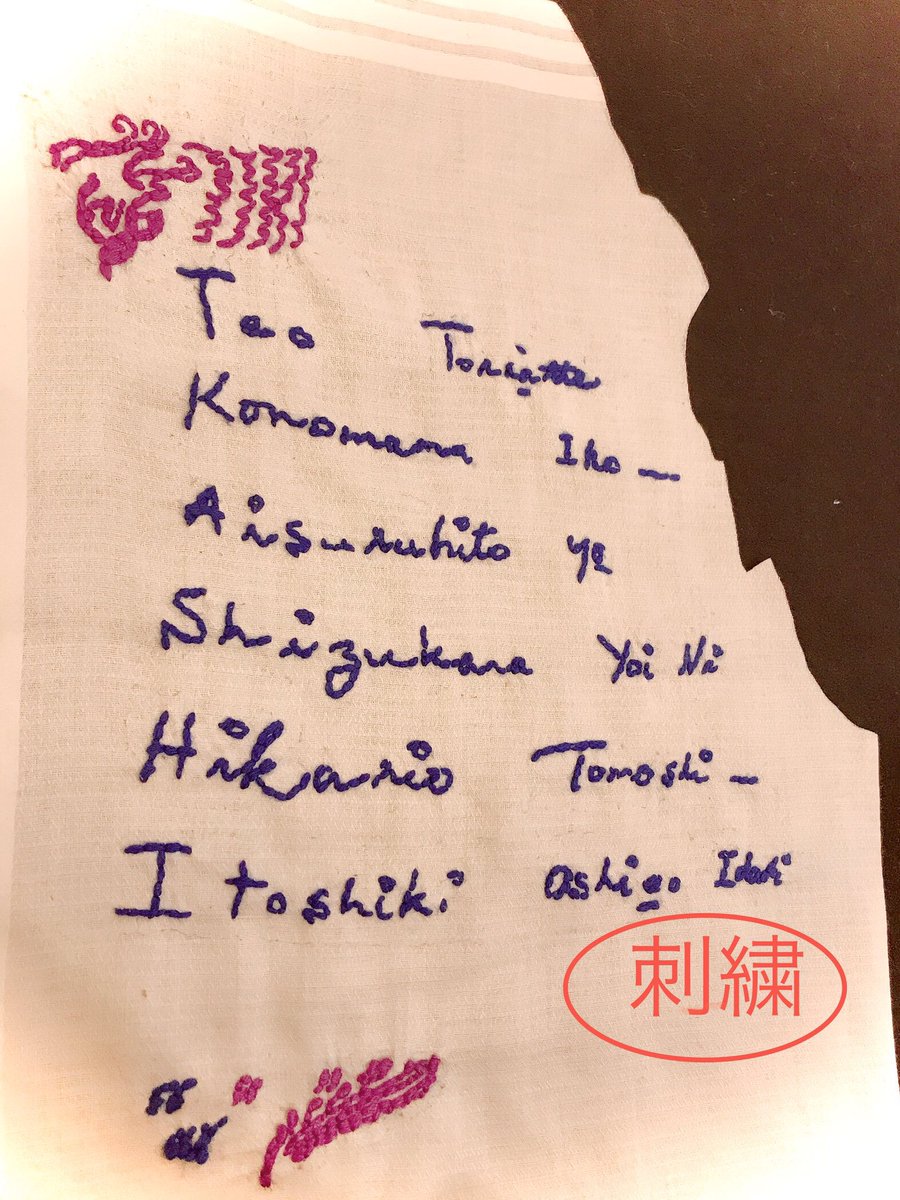 Teo Toriatte
Konomama Iko _
Aisuruhito yo
Shizukana Yoi Ni
Hikario Tomoshi _
Itoshiki oshieo Idaki
刺繍